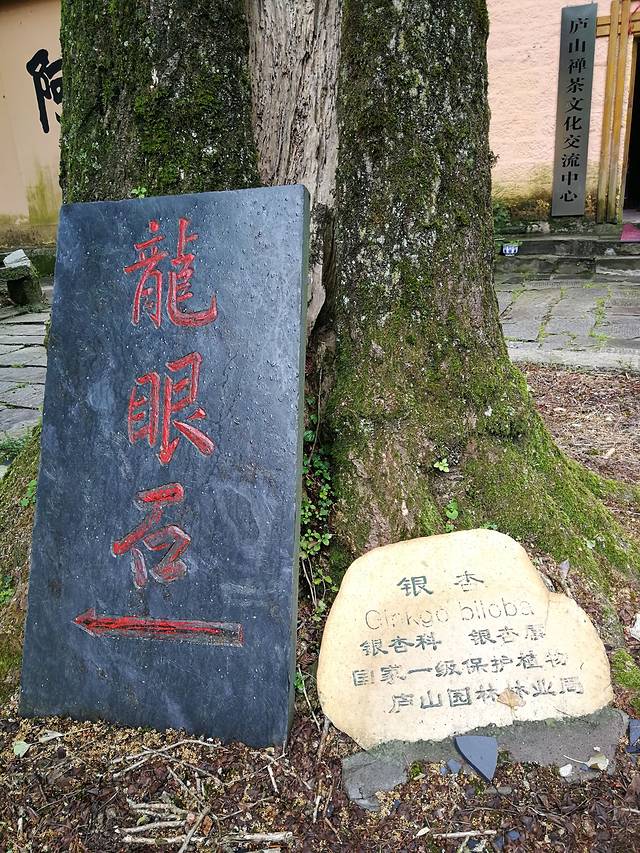 阿
庐山禅茶文化交流中心
龍眼石
银杏
Ginkgo biloba
银杏科 银杏属
国家一级保护植物
庐山园林林业局